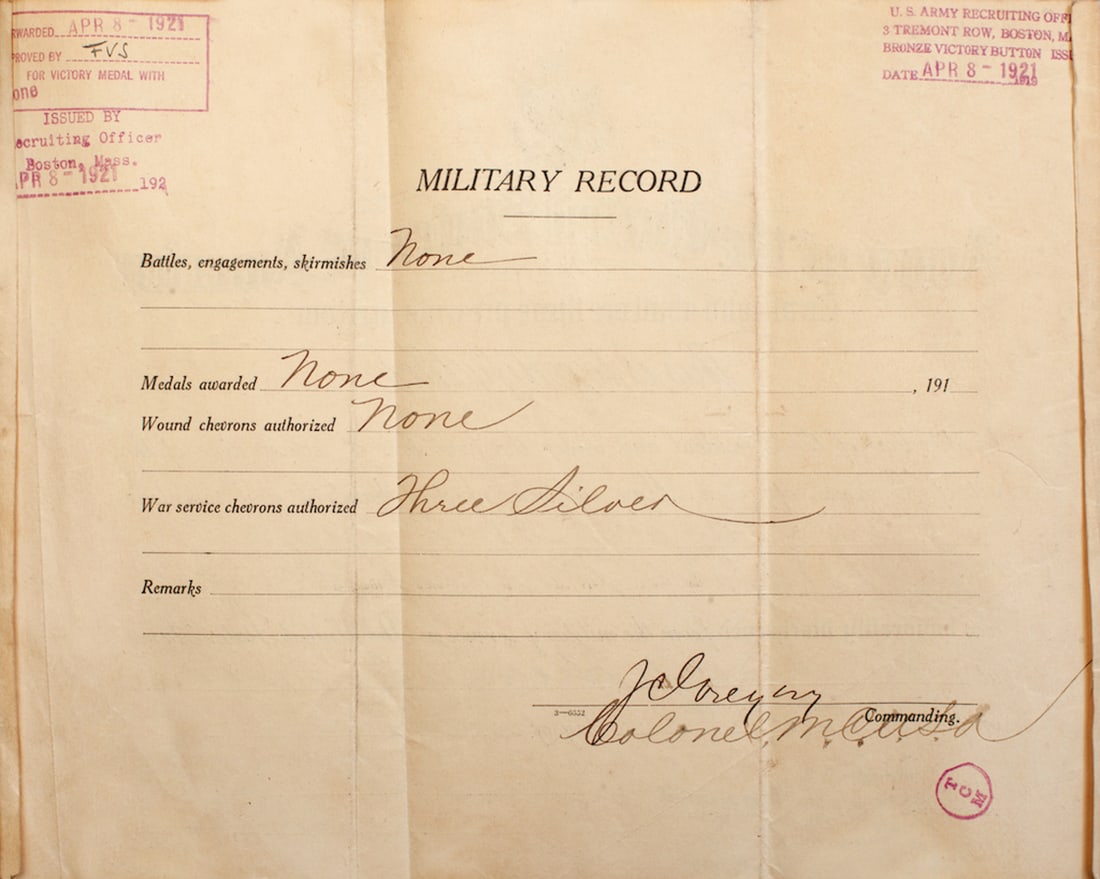 RWARDED APR 8- 1921
PROVED BY FVS
FOR VICTORY MEDAL WITH
one
ISSUED BY
ecruiting Officer
Boston, Mass.
PR 8-1921 192
U. S. ARMY RECRUITING OFF
3 TREMONT ROW, BOSTON, M
BRONZE VICTORY BUTTON ISS
DATE APR 8- 1921 1919
MILITARY RECORD
Battles, engagements, skirmishes None
Medals awarded None , 191
Wound chevrons authorized None
War service chevrons authorized Three Silver
Remarks
Gregory
3—6552 Commanding.
Colonel, M.C. U.S.A
TCM